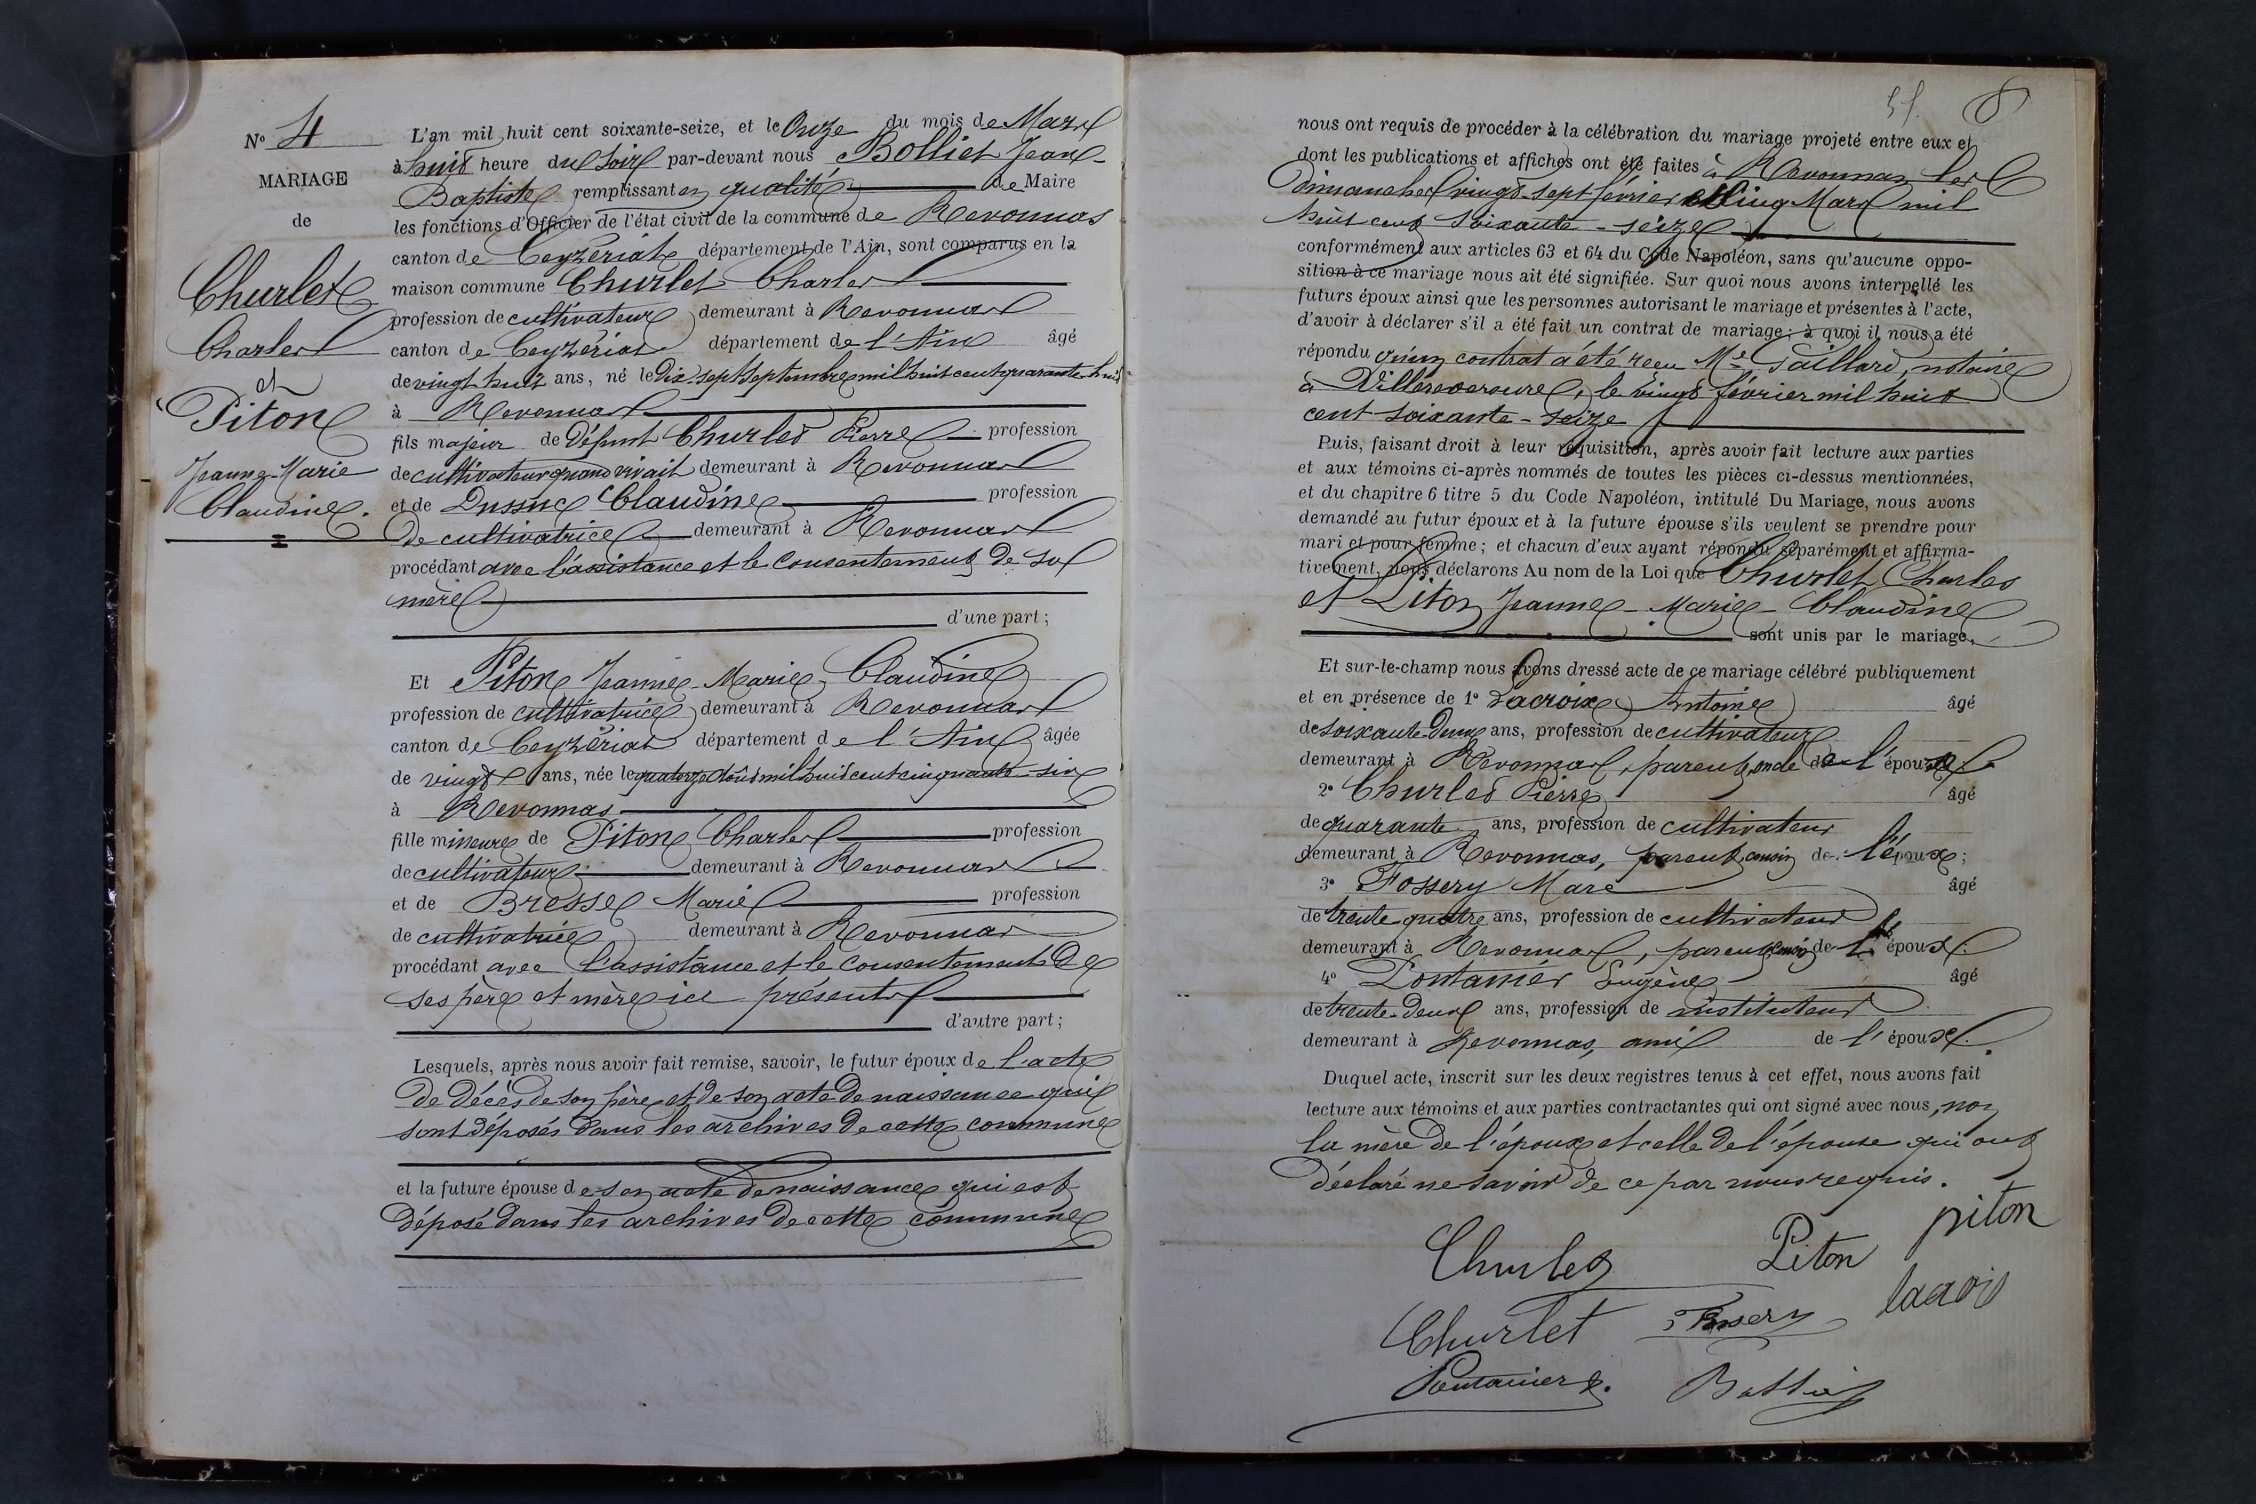 N° 4
MARIAGE
de
Churlet
Charles
et
Piton
Jeanne-Marie
Claudine.
L'an mil huit cent soixante-seize, et le Onze du mois de Mars
à huit heure du Soir par-devant nous Bolliet Jean-
Baptiste remplissant en qualité de Maire
les fonctions d'Officier de l'état civil de la commune de Revonnas
canton de Ceyzériat département de l'Ain, sont comparus en la
maison commune Churlet Charles
profession de cultivateur demeurant à Revonnas
canton de Ceyzériat département de l'Ain âgé
de vingt huit ans, né le Dix-sept Septembre mil huit cent quarante-huit
à Revonnas
fils majeur de défunt Churlet Pierre profession
de cultivateur quand vivait demeurant à Revonnas
et de Claudine profession
de cultivatrice demeurant à Revonnas
procédant avec l'assistance et le consentement de sa
mère
d'une part ;
Et Piton Jeanne-Marie-Claudine
profession de cultivatrice demeurant à Revonnas
canton de Ceyzériat département de l'Ain âgée
de vingt ans, née le quatorze Août mil huit cent cinquante-six
à Revonnas
fille mineure de Piton Charles profession
de cultivateur demeurant à Revonnas
et de Bresse Marie profession
de cultivatrice demeurant à Revonnas
procédant avec l'assistance et le consentement de
ses père et mère ici présents
d'autre part ;
Lesquels, après nous avoir fait remise, savoir, le futur époux de l'acte
de décès de son père et de son acte de naissance qui
sont déposés dans les archives de cette commune
et la future épouse de son acte de naissance qui est
déposé dans les archives de cette commune
8
nous ont requis de procéder à la célébration du mariage projeté entre eux et
dont les publications et affiches ont été faites à Revonnas les
dimanches vingt-sept février et cinq Mars mil
huit cent soixante-seize
conformément aux articles 63 et 64 du Code Napoléon, sans qu'aucune oppo-
sition à ce mariage nous ait été signifiée. Sur quoi nous avons interpellé les
futurs époux ainsi que les personnes autorisant le mariage et présentes à l'acte,
d'avoir à déclarer s'il a été fait un contrat de mariage ; à quoi il nous a été
répondu qu'un contrat a été reçu Me Gaillard, notaire
à Villereversure, le vingt février mil huit
cent soixante-seize
Puis, faisant droit à leur réquisition, après avoir fait lecture aux parties
et aux témoins ci-après nommés de toutes les pièces ci-dessus mentionnées,
et du chapitre 6 titre 5 du Code Napoléon, intitulé Du Mariage, nous avons
demandé au futur époux et à la future épouse s'ils veulent se prendre pour
mari et pour femme ; et chacun d'eux ayant répondu séparément et affirma-
tivement, nous déclarons Au nom de la Loi que Churlet Charles
et Piton Jeanne-Marie-Claudine
sont unis par le mariage,
Et sur-le-champ nous avons dressé acte de ce mariage célébré publiquement
et en présence de 1° Lacroix Antoine âgé
de soixante-deux ans, profession de cultivateur
demeurant à Revonnas, parent, oncle de l'époux
2° Churlet Pierre âgé
de quarante ans, profession de cultivateur
demeurant à Revonnas, parent, cousin de l'époux ;
3° Fossery Marc âgé
de trente quatre ans, profession de cultivateur
demeurant à Revonnas, parent, cousin de l'époux.
4° Pontanier Eugène âgé
de trente-deux ans, profession de instituteur
demeurant à Revonnas, ami de l'époux.
Duquel acte, inscrit sur les deux registres tenus à cet effet, nous avons fait
lecture aux témoins et aux parties contractantes qui ont signé avec nous, non
la mère de l'époux et celle de l'épouse qui ont
déclaré ne savoir de ce par nous requis.
Churlet Piton piton
Churlet Fossery lacroix
Pontanier E. Bolliet